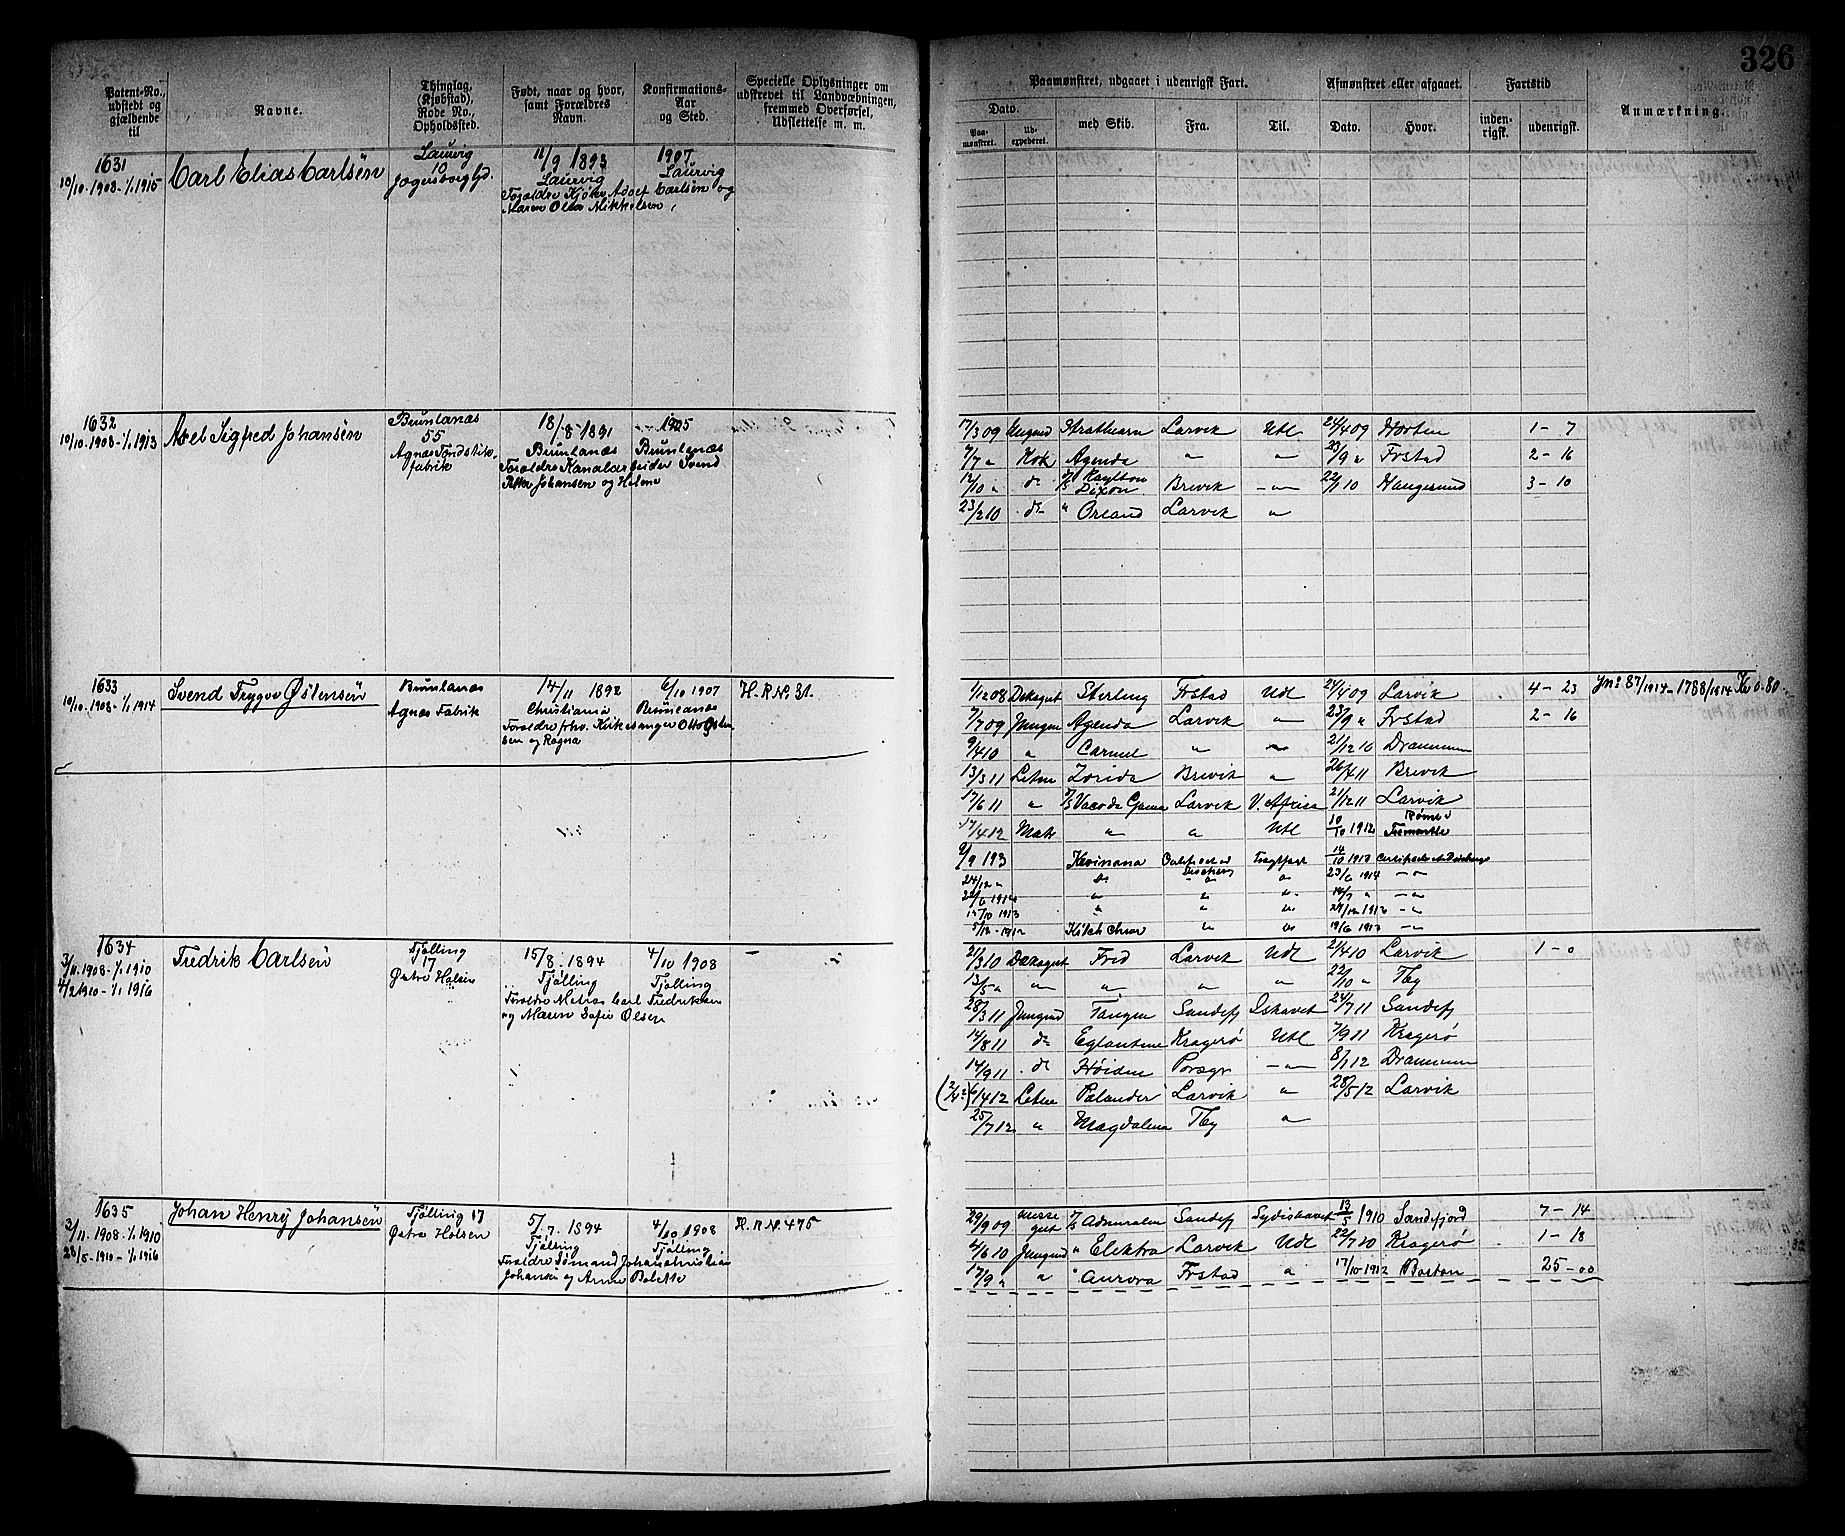 326
Patent-No., udstedt og gjældende til
Navne.
Thinglag, (Kjøbstad), Rode No., Opholdssted.
Født, naar og hvor, samt Forældres Navn.
Konfirmations-Aar og Sted.
Specielle Oplysninger om udskrevet til Landvæbningen, fremmed Overførsel, Udslettelse m. m.
Paamønstret, udgaaet i udenrigsk Fart.
Dato.
Paa-mønstret.
Ud-expederet.
med Skib.
Fra.
Til.
Afmønstret eller afgaaet.
Dato.
Hvor.
Fartstid
inden-rigsk.
udenrigsk.
Anmærkning.
1631
10/10-1908-1/1 1915
Carl Elias Carlsén
Laurvig
10
11/9 1893
Laurvig
Forældre Adolf Carlsen og
Maren Olea Mikkelsen
1907
Laurvig
1632
10/10-1908-1/1 1913
Axel Sigfred Johansén
Brunlanæs
55
Agnæs Fyrstikfabrik
18/8 1891
Brunlanæs
Forældre Kanalarbeider Svend
Petter Johansen og Helene
1905
Brunlanæs
17/3 09 Jungmd Strathearn Larvik Utl 24/4 09 Horten 1-7
7/7 " Kok Agenda " " 23/9 " Frstad 2-16
12/10 " do Raylton Dixon Brevik -"- 22/1 10 Haugesund 3-10
23/2 10 do " Orland Larvik "
1633
10/10-1908-1/1 1914
Svend Trygve Østensén
Brunlanæs
Agnæs Fabrik
14/11 1892
Christiania
Forældre fhv. Kirkesanger Otto Østensen og Ragna
6/10 1907
Brunlanæs
H. R. No 31.
1/12 08 Dæksgut Sterling Frstad Udl 24/4 09 Larvik 4-23 Jno 87/1914-1788/1914 Kr 0.80
7/7 09 Jungm Agenda Larvik " 23/9 " Frstad 2-16
9/4 10 " Carmel " " 21/12 10 Drammen
13/3 11 Letm Zorida Brevik " 26/4 11 Brevik
17/6 11 " Vasco da Gama Larvik V. Africa 21/12 11 Larvik
17/4 12 Matr " " Utl 10/10 1912 Rømt i Fremantle
Kevinana Fragtfart 14/10 1913
24/12 " Do " " 23/6 1914 -"-
" " " 14/7 " -"-
15/10 1913 " " " -"-
19/6 1913 -"-
1634
3/11.1908-1/1 1910
4/2 1910-1/1 1916
Fredrik Carlsén
Tjølling
17
Østre Halsen
15/8. 1894
Tjølling
Forældre Matros Carl Fredriksen
og Maren Sofie Olsen
4/10 1908
Tjølling
-
21/3 10 Dæksgut Fred Larvik Udl 21/4 10 Larvik 1-0
13/5 " " " " " 22/10 " Tbg
28/3 11 Jungmd Tangen Sandefj Ishavet 24/7 11 Sandefj
14/8 11 do Eglantine Kragerø Utl 7/9 11 Kragerø
14/9 11 do Høiden Porsgr -"- 8/1 12 Drammen
6/4 12 Letm Palander Larvik " 28/5 12 Larvik
25/7 12 " Magdalena Tbg "
1635
3/11.1908-1/1 1910
28/5-1910-1/1 1916
Johan Henry Johansén
Tjølling 17
Østre Halsen
5/7. 1894
Tjølling
Forældre Sømand Johan Christian
Johansen og Anne Bolette
4/10 1908
Tjølling
H. R. No. 475
29/9 09 messegut Admiralen Sandefj Sydishavet 13/5 1910 Sandefjord 7-14
4/6 10 Jungmd " Elektra Larvik Udl 22/7 10 Kragerø 1-18
17/9 " " " Aurora Frstad " 17/10-1912 Boston 25-00